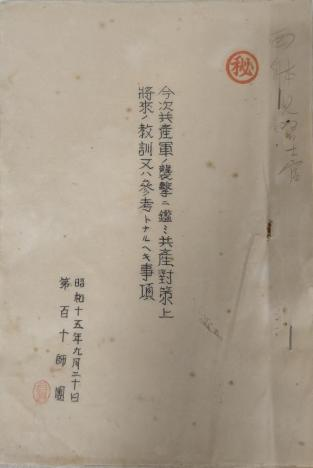 秘
今次共産軍ノ襲撃ニ鑑ミ共産對策上
將來ノ教訓又ハ參考トナルヘキ事項
昭和十五年九月二十日
第百十師團